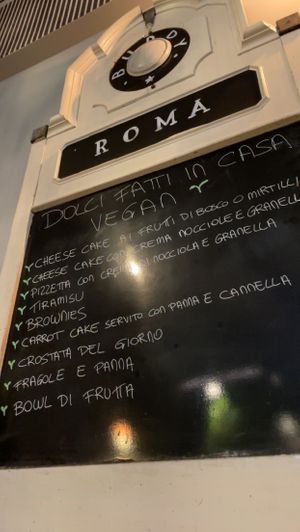 BUDDY
ROMA
DOLCI FATTI IN CASA
VEGAN
CHEESE CAKE AI FRUTTI DI BOSCO O MIRTILLI
CHEESE CAKE CON CREMA NOCCIOLE E GRANELLA
PIZZETTA CON CREMA DI NOCCIOLA E GRANELLA
TIRAMISU
BROWNIES
CARROT CAKE SERVITO CON PANNA E CANNELLA
CROSTATA DEL GIORNO
FRAGOLE E PANNA
BOWL DI FRUTTA